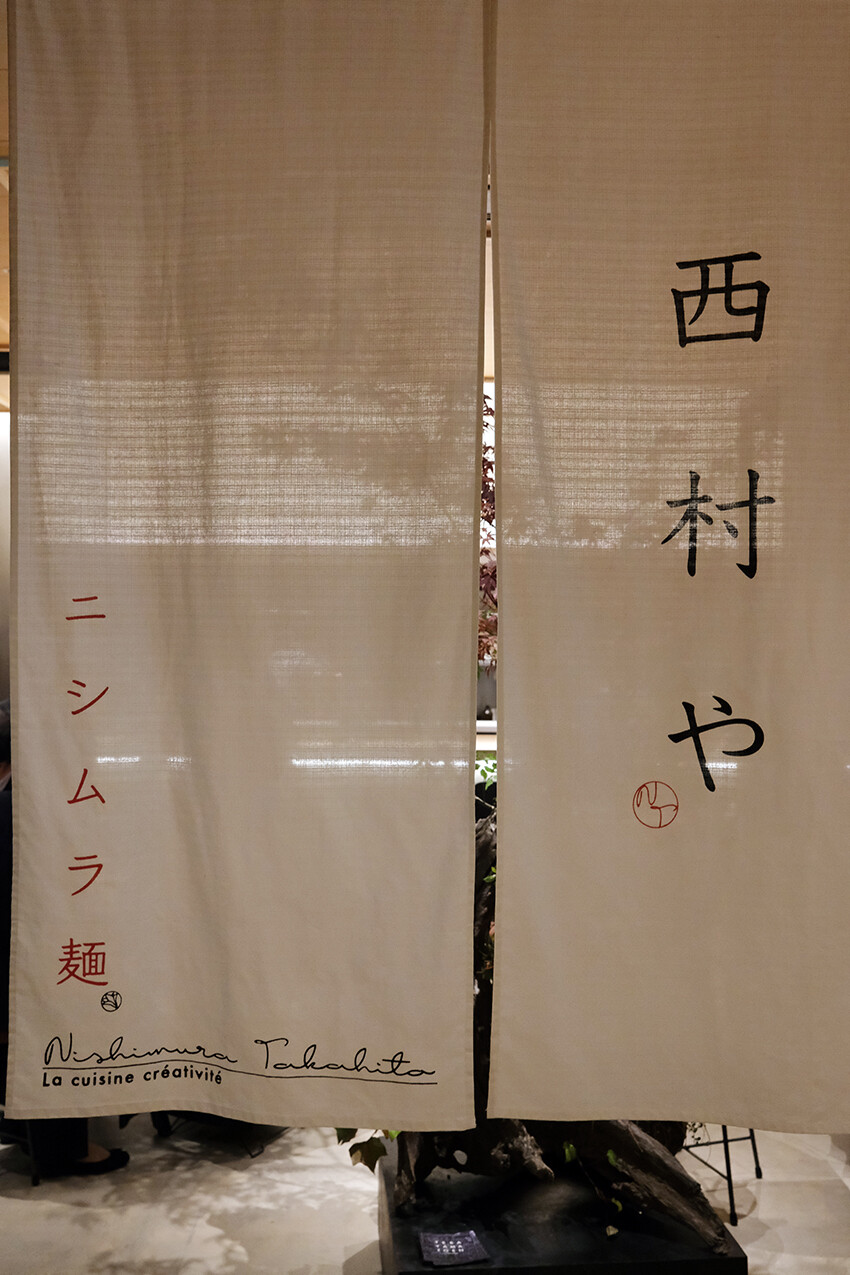 西村や
ニシムラ麺
Nishimura Takahito
La cuisine créativité